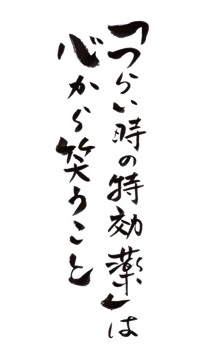 「つらい時の特効薬」は
心から笑うこと